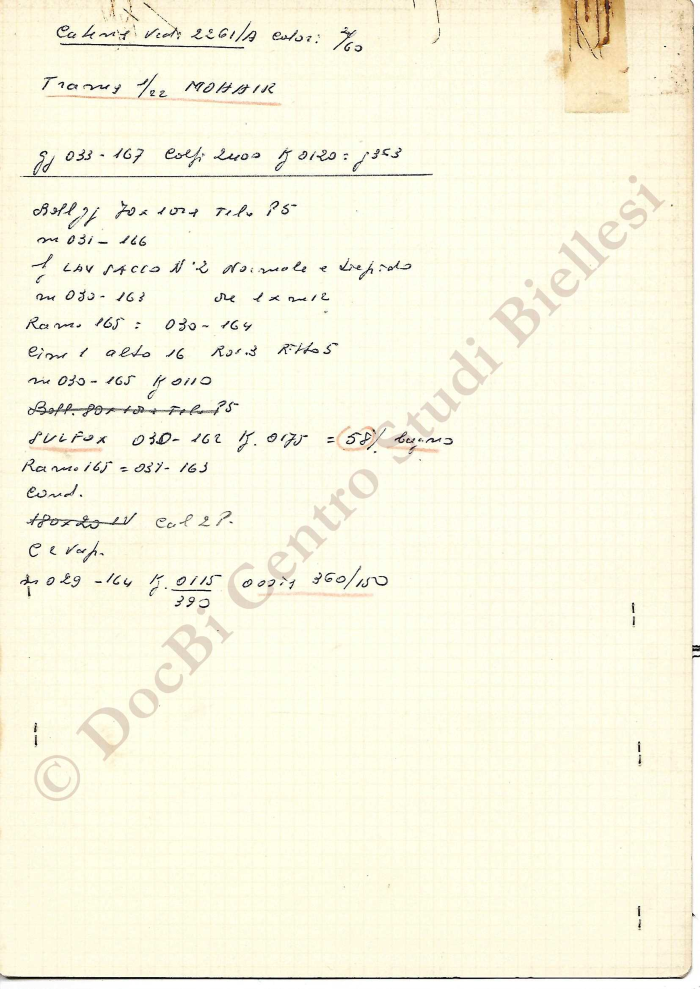 Catena Vedi 2261/A Colori 2/60
Trama 1/22 MOHAIR
gj 033 - 167 Colpi 2400 K 0120 = g 353
Boll gj 70 x 100+ Tela P5
m 031 - 166
LAV SACCO N°2 Normale e Tiepido
m 030 - 163 ore 1 x m 12
Ramo 165 = 030 - 164
Cim 1 alto 16 Rov. 3 Ritto 5
m 030 - 165 K 0110
Boll. 80 x 100+ Tela P5
SULFOX 030 - 162 K. 0175 = 58%. bagno
Ramo 165 = 031 - 163
Cond.
180x20 Cal 2 P.
C 2 Vap.
m 029 - 164 K. 0115/390 ossia 360/150
© DocBi Centro Studi Biellesi